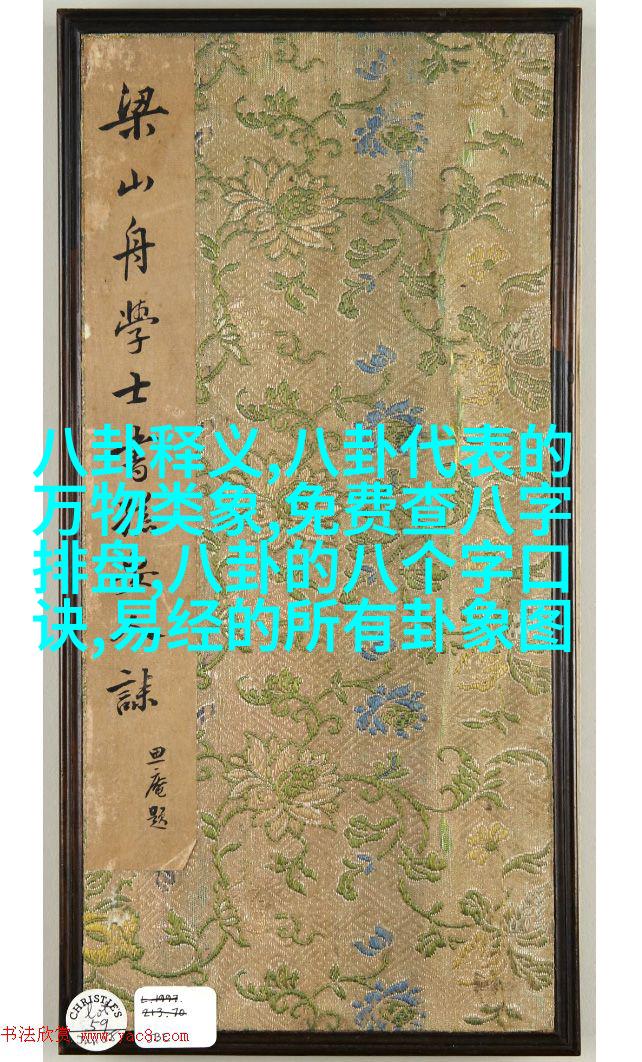 梁山舟學士書
誄
思庵題
八卦释义,八卦代表的
万物类象,免费查八字
排盘,八卦的八个字口
诀,易经的所有卦象图
CHRISTIE'S
Lot
59
L.1997.
213.70
书法欣赏 www.yac8.com